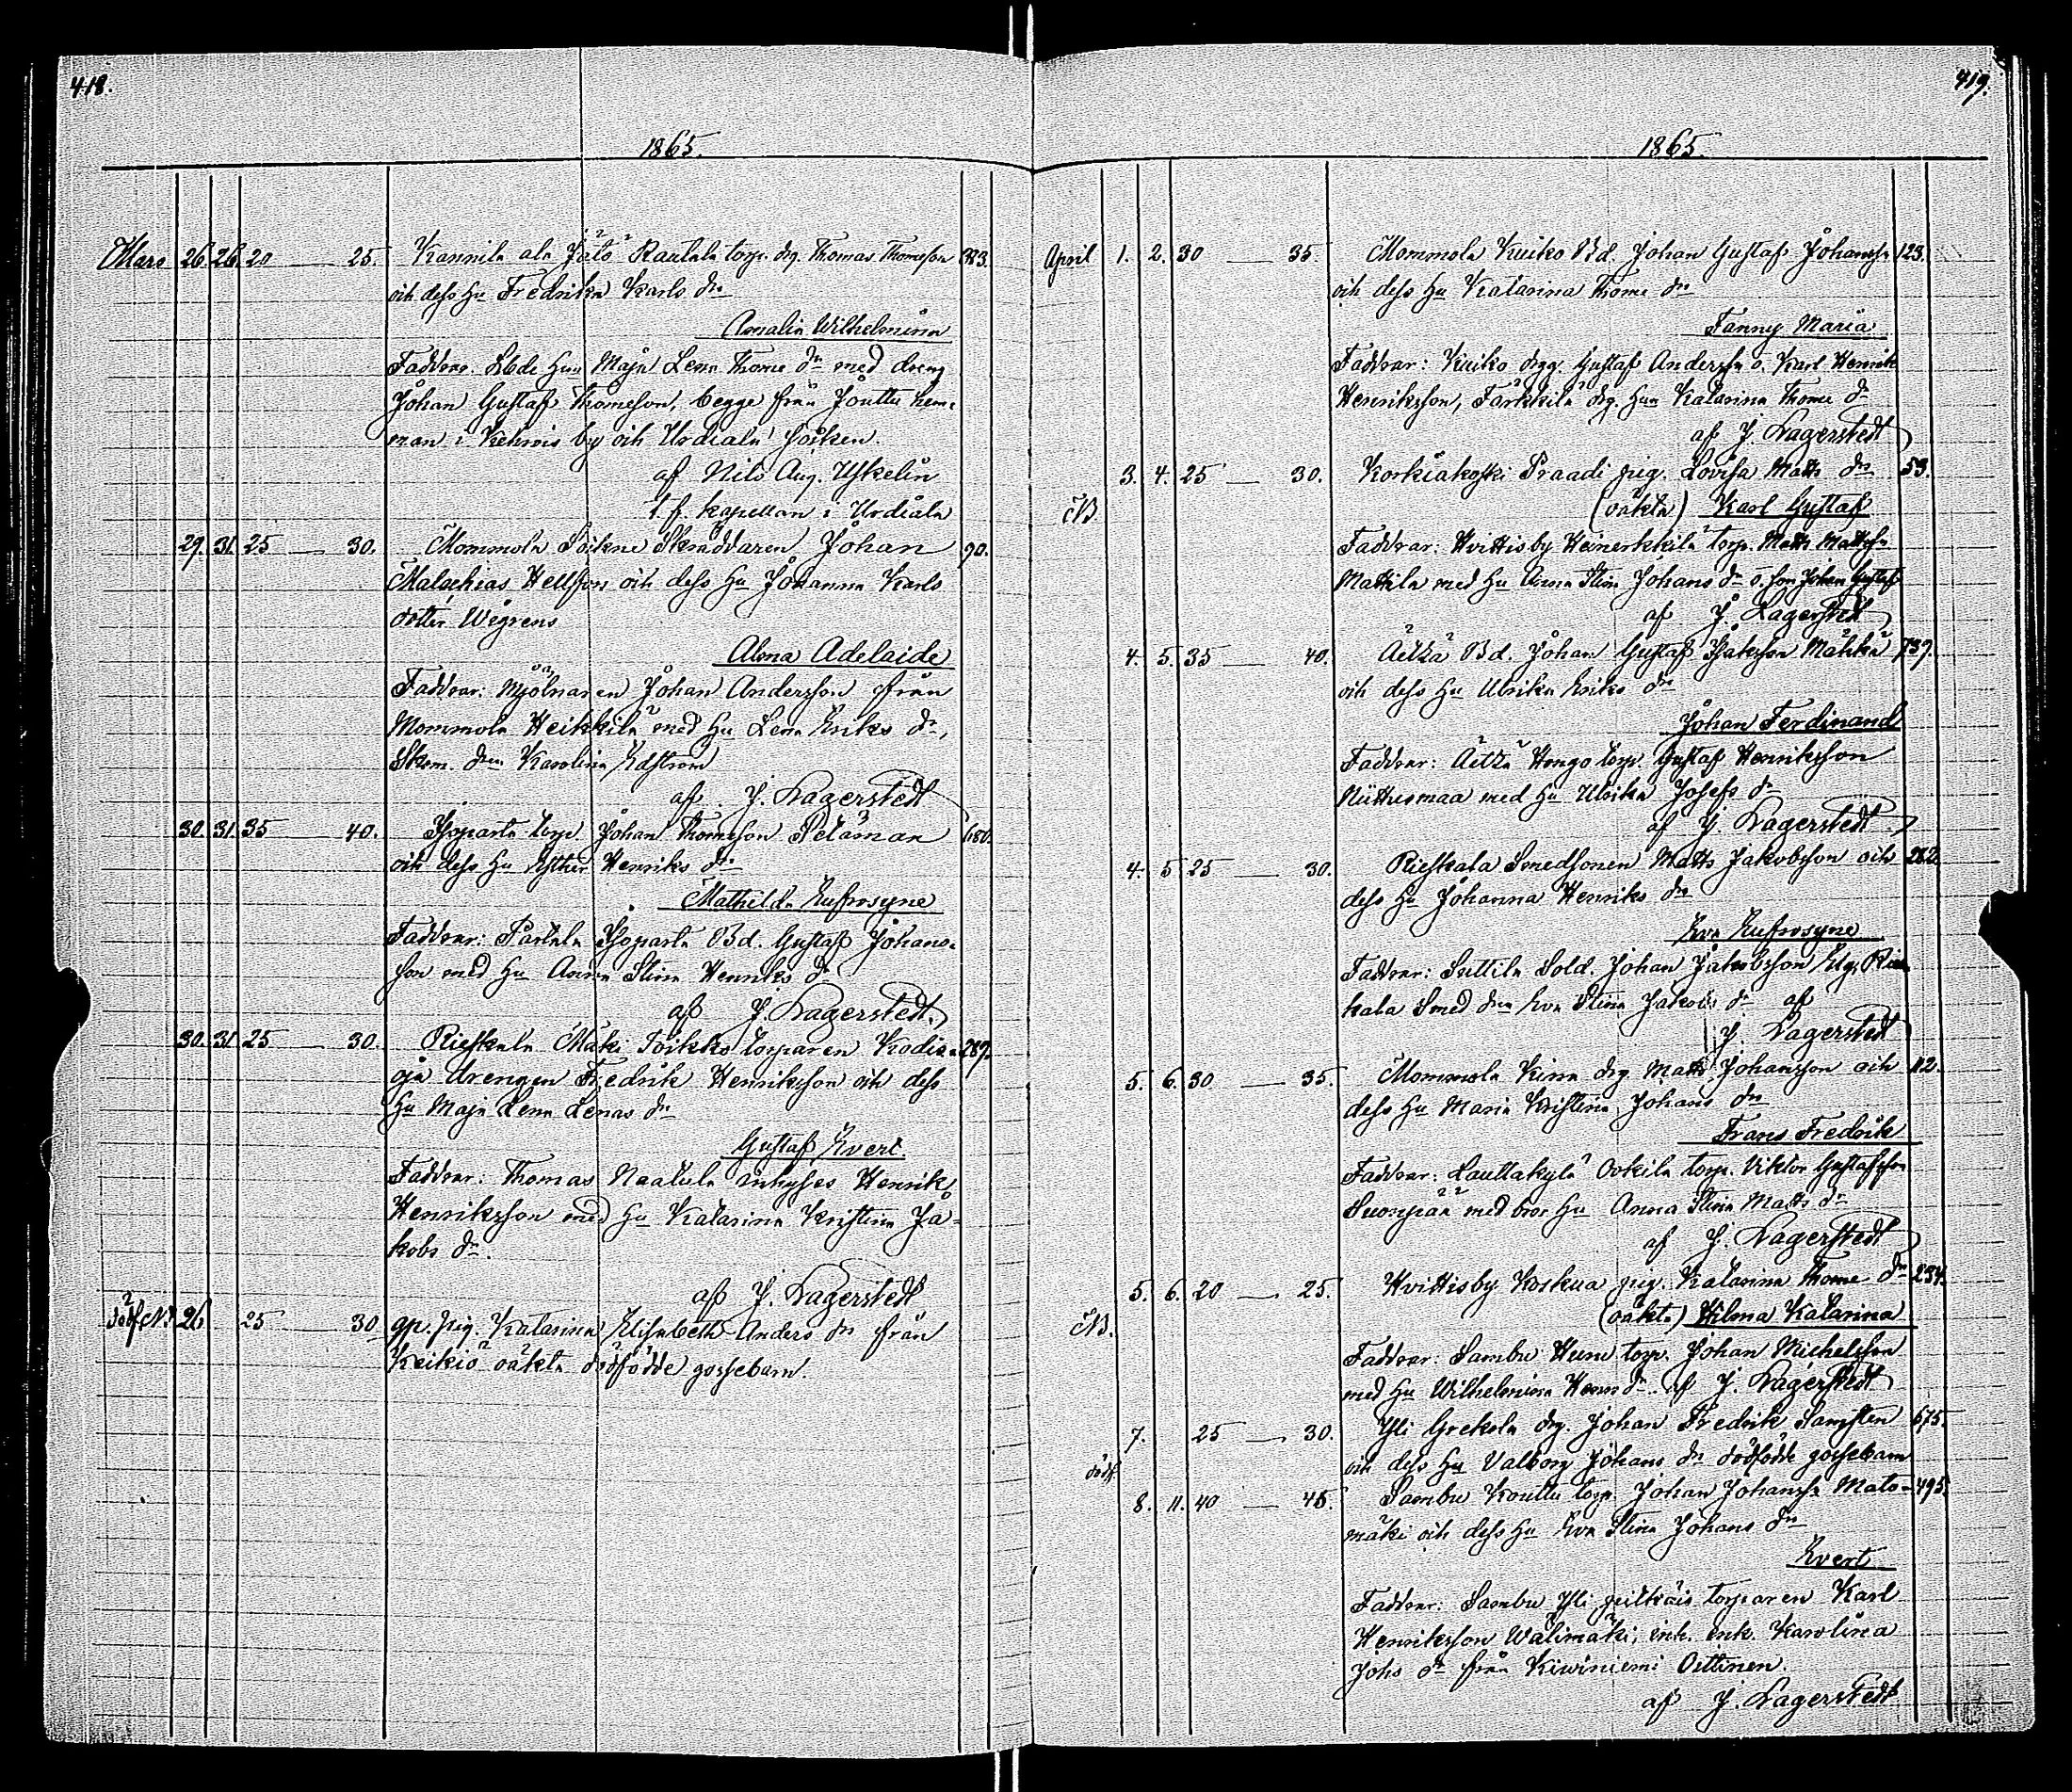 418.
1865.
Mars 26. 26. 20 — 25. Kannila ala Jatö Rautala torp. drg. Thomas Thomsson 383.
och dess Hu Fredrika Karls dr
Amalia Wilhelmina
Faddrar: Maja Lena Thome dr med dreng
Johan Gustaf Thomsson, begge från Jouttu hem-
man i Kehrois by och Urdiala socken.
af Nils Aug. Uskelin
t.f. kapellan i Urdiala
29. 31. 25 — 30. Mommola Sockne Skräddaren Johan 90.
Malachias Hellsson och dess Hu Johanna Karls
dotter Wegrens
Alma Adelaide
Faddrar: Mjölnaren Johan Andersson från
Mommola Heikkilä med Hu Lena Eriks dr,
Karolina Edström
af J. Lagerstedt
30. 31. 35 — 40. Isoparta torp. Johan Thomsson Petäman 180.
och dess Hu Esther Henriks dr
Mathilda Eufrosyne
Faddrar: Isoparta Bd. Gustaf Johans-
son med Hu Anna Stina Henriks dr
af J. Lagerstedt.
30. 31. 25 — 30. Rieskala Mäki Toikko torparen Kodis- 287.
oja drengen Fredrik Henriksson och dess
Hu Maja Lena Lenas dr
Gustaf Evert.
Faddrar: Thomas Naatula inhyses Henrik
Henriksson med Hu Katarina Kristina Ja-
kobs dr.
af J. Lagerstedt
dödf. NB. 26 25 — 30 pig. Katarina Elisabeth Anders dr från
Keikiö oäkta dödfödde gossebarn.
419.
1865.
April 1. 2. 30 — 35. Mommola Kuiko Bd. Johan Gustaf Johanss. 123.
och dess Hu Katarina Thome dr
Fanny Maria
Faddrar: Kuiko drgg. Gustaf Anderss. o. Karl Henrik
Henriksson, Tarkkila drg. Hun Katarina Thome dr
af J. Lagerstedt
3. 4. 25 — 30. Korkiakoski Praadi pig. Lovisa Matts dr 53.
NB. (oäkta) Karl Gustaf
Faddrar: Hvittisby Heinerkkilä torp. Matts Mattss.
Mattila med Hu Anna Stina Johans dr o. son Johan Gustaf
af J. Lagerstedt
4. 5. 35 — 40. Äetzä Bd. Johan Gustaf Isaksson Mähkä 739.
och dess Hu Ulrika Eriks dr
Johan Ferdinand
Faddrar: Äetzä Hongo torp. Gustaf Henriksson
Niittusmaa med Hu Ulrika Josefs dr
af J. Lagerstedt
4. 5 25 — 30. Rieskala Smedsonen Matts Jakobsson och 282.
dess Hu Johanna Henriks dr
Eva Eufrosyne
Faddrar: Suttila Sold. Johan Jakobsson Elg, Ries-
kala Smed drn Eva Stina Jakobs dr af
J. Lagerstedt
5. 6. 30 — 35. Mommola Kina drg. Matts Johansson och 112.
dess Hu Maria Kristina Johans dr
Frans Fredrik
Faddrar: Lauttakylä Ookila torp. Viktor Gustafsson
Suonpää med dess Hu Anna Stina Matts dr
af J. Lagerstedt
5. 6. 20 — 25. Hvittisby Koskua pig. Katarina Thome dr 234.
NB. (oäkta) Hilma Katarina
Faddrar: Sambu Huru torp. Johan Michelsson
med Hu Wilhelmina dr af J. Lagerstedt
7. 25 — 30. Yli Grekola drg. Johan Fredrik Samsten 675.
dödf. och dess Hu Valborg Johans dr dödfödde gossebarn
8. 11. 40 — 45. Sambu Kouttu torp. Johan Johanss. Mato- 495.
mäki och dess Hu Eva Stina Johans dr
Evert
Faddrar: Sambu Yli torparen Karl
Henriksson Wälimäki, inh. enk. Karolina
Johs dr från Kiwiniemi Oittinen.
af J. Lagerstedt